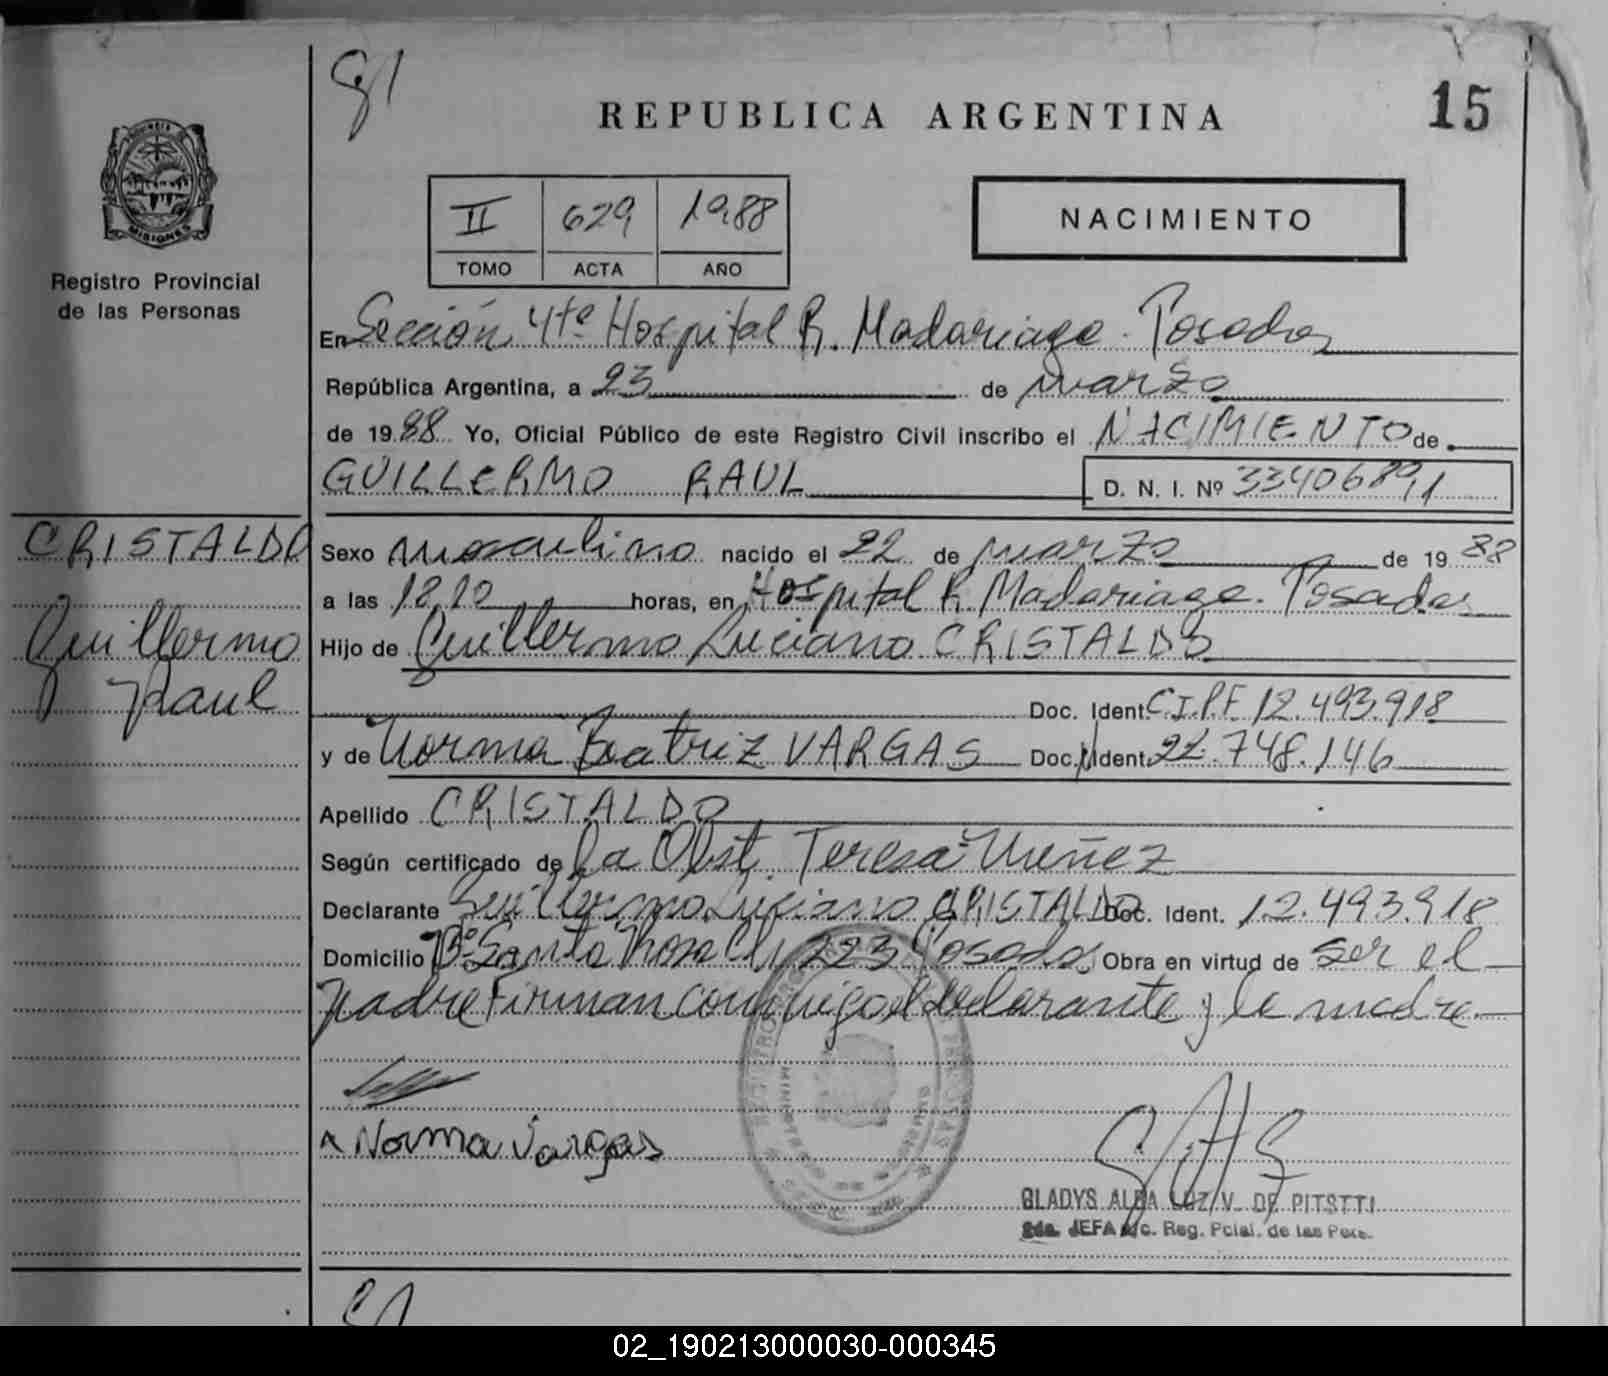 15
REPUBLICA ARGENTINA
II 629 1988
TOMO ACTA AÑO
NACIMIENTO
MISIONES
Registro Provincial
de las Personas
En Sección 4ta Hospital R. Madariaga - Posadas
República Argentina, a 23 de marzo
de 1988 Yo, Oficial Público de este Registro Civil inscribo el NACIMIENTO de
GUILLERMO RAUL D. N. I. Nº 33406891
CRISTALDO
Guillermo
Raul
Sexo masculino nacido el 22 de marzo de 1988
a las horas, en Hospital R. Madariaga - Posadas
Hijo de Guillermo Luciano CRISTALDO
Doc. Ident. C.I.P.F. 12.493.918
y de Norma Beatriz VARGAS Doc. Ident. 22.748.146
Apellido CRISTALDO
Según certificado de la Obst. Teresa
Declarante Guillermo Luciano CRISTALDO Doc. Ident. 12.493.918
Domicilio Bº Santa Rosa 223 Posadas Obra en virtud de ser el
padre Firman conmigo el declarante y la madre
Norma Vargas
GLADYS ALBA LUZ V. DE PITSTTI
2da. JEFA a/c. Reg. Pcial. de las Pers.
02_190213000030-000345